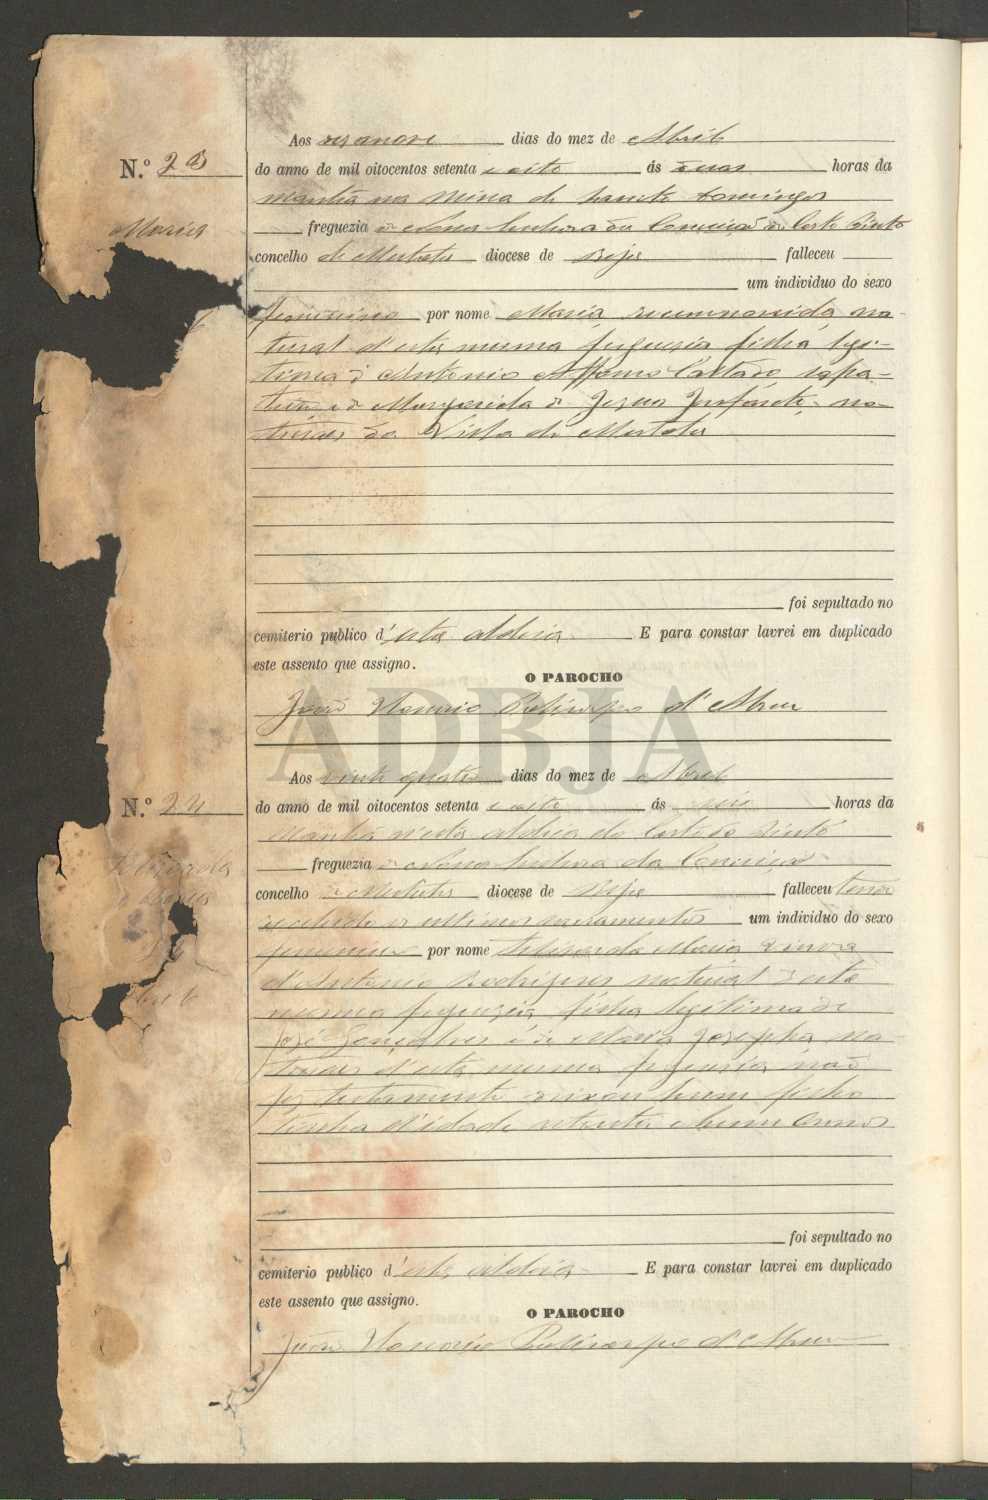 N.º 23
Maria
Aos desanove dias do mez de Abril
do anno de mil oitocentos setenta e oito ás duas horas da
manhã na Mina de Sancto Domingos
freguezia de Nossa Senhora da Conceição de Corte Pinto
concelho de Mertola diocese de Beja falleceu
um individuo do sexo
feminino por nome Maria, recemnascida, na-
tural d'esta mesma freguezia filha legi-
tima d' Antonio Affonso Caetano sapa-
teiro e de Margarida de Jesus na-
turaes da Villa de Mertola
foi sepultado no
cemiterio publico d'esta aldeia. E para constar lavrei em duplicado
este assento que assigno.
O PAROCHO
João Honorio Policarpo d'Abreu
ADBJA
N.º 24
Maria
Aos vinte quatro dias do mez de Abril
do anno de mil oitocentos setenta e oito ás seis horas da
Manhã n'esta aldeia de Corte do Pinto
freguezia de Nossa Senhora da Conceição
concelho de Mertola diocese de Beja falleceu tendo
recebido os ultimos sacramentos um individuo do sexo
feminino por nome Maria viuva
d'Antonio Rodrigues natural d'esta
mesma freguezia, filha legitima de
José Gonçalves e de Maria Josepha na-
turaes d'esta mesma freguezia não
fez testamento deixou hum filho
tinha d'idade setenta e hum annos
foi sepultado no
cemiterio publico d'esta aldeia. E para constar lavrei em duplicado
este assento que assigno.
O PAROCHO
João Honorio Policarpo d'Abreu